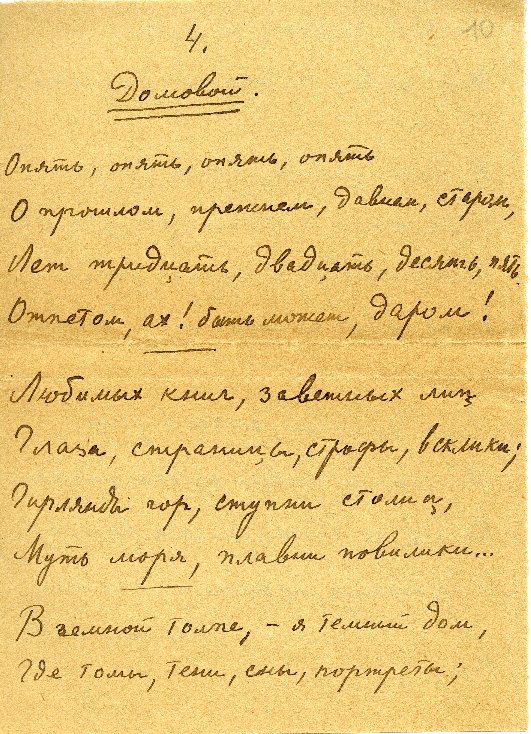 10
4.
Домовой.
Опять, опять, опять, опять
О прошлом, прежнем, давнем, старом,
Лет тридцать, двадцать, десять, пять
Отпетом, ах! быть может, даром!
Любимых книг, заветных лиц
Глаза, страницы, строфы, всклики;
Гирлянды гор, ступни столиц,
Муть моря, плавни повилики...
В земной толпе, – я темный дом,
Где томы, тени, сны, портреты;